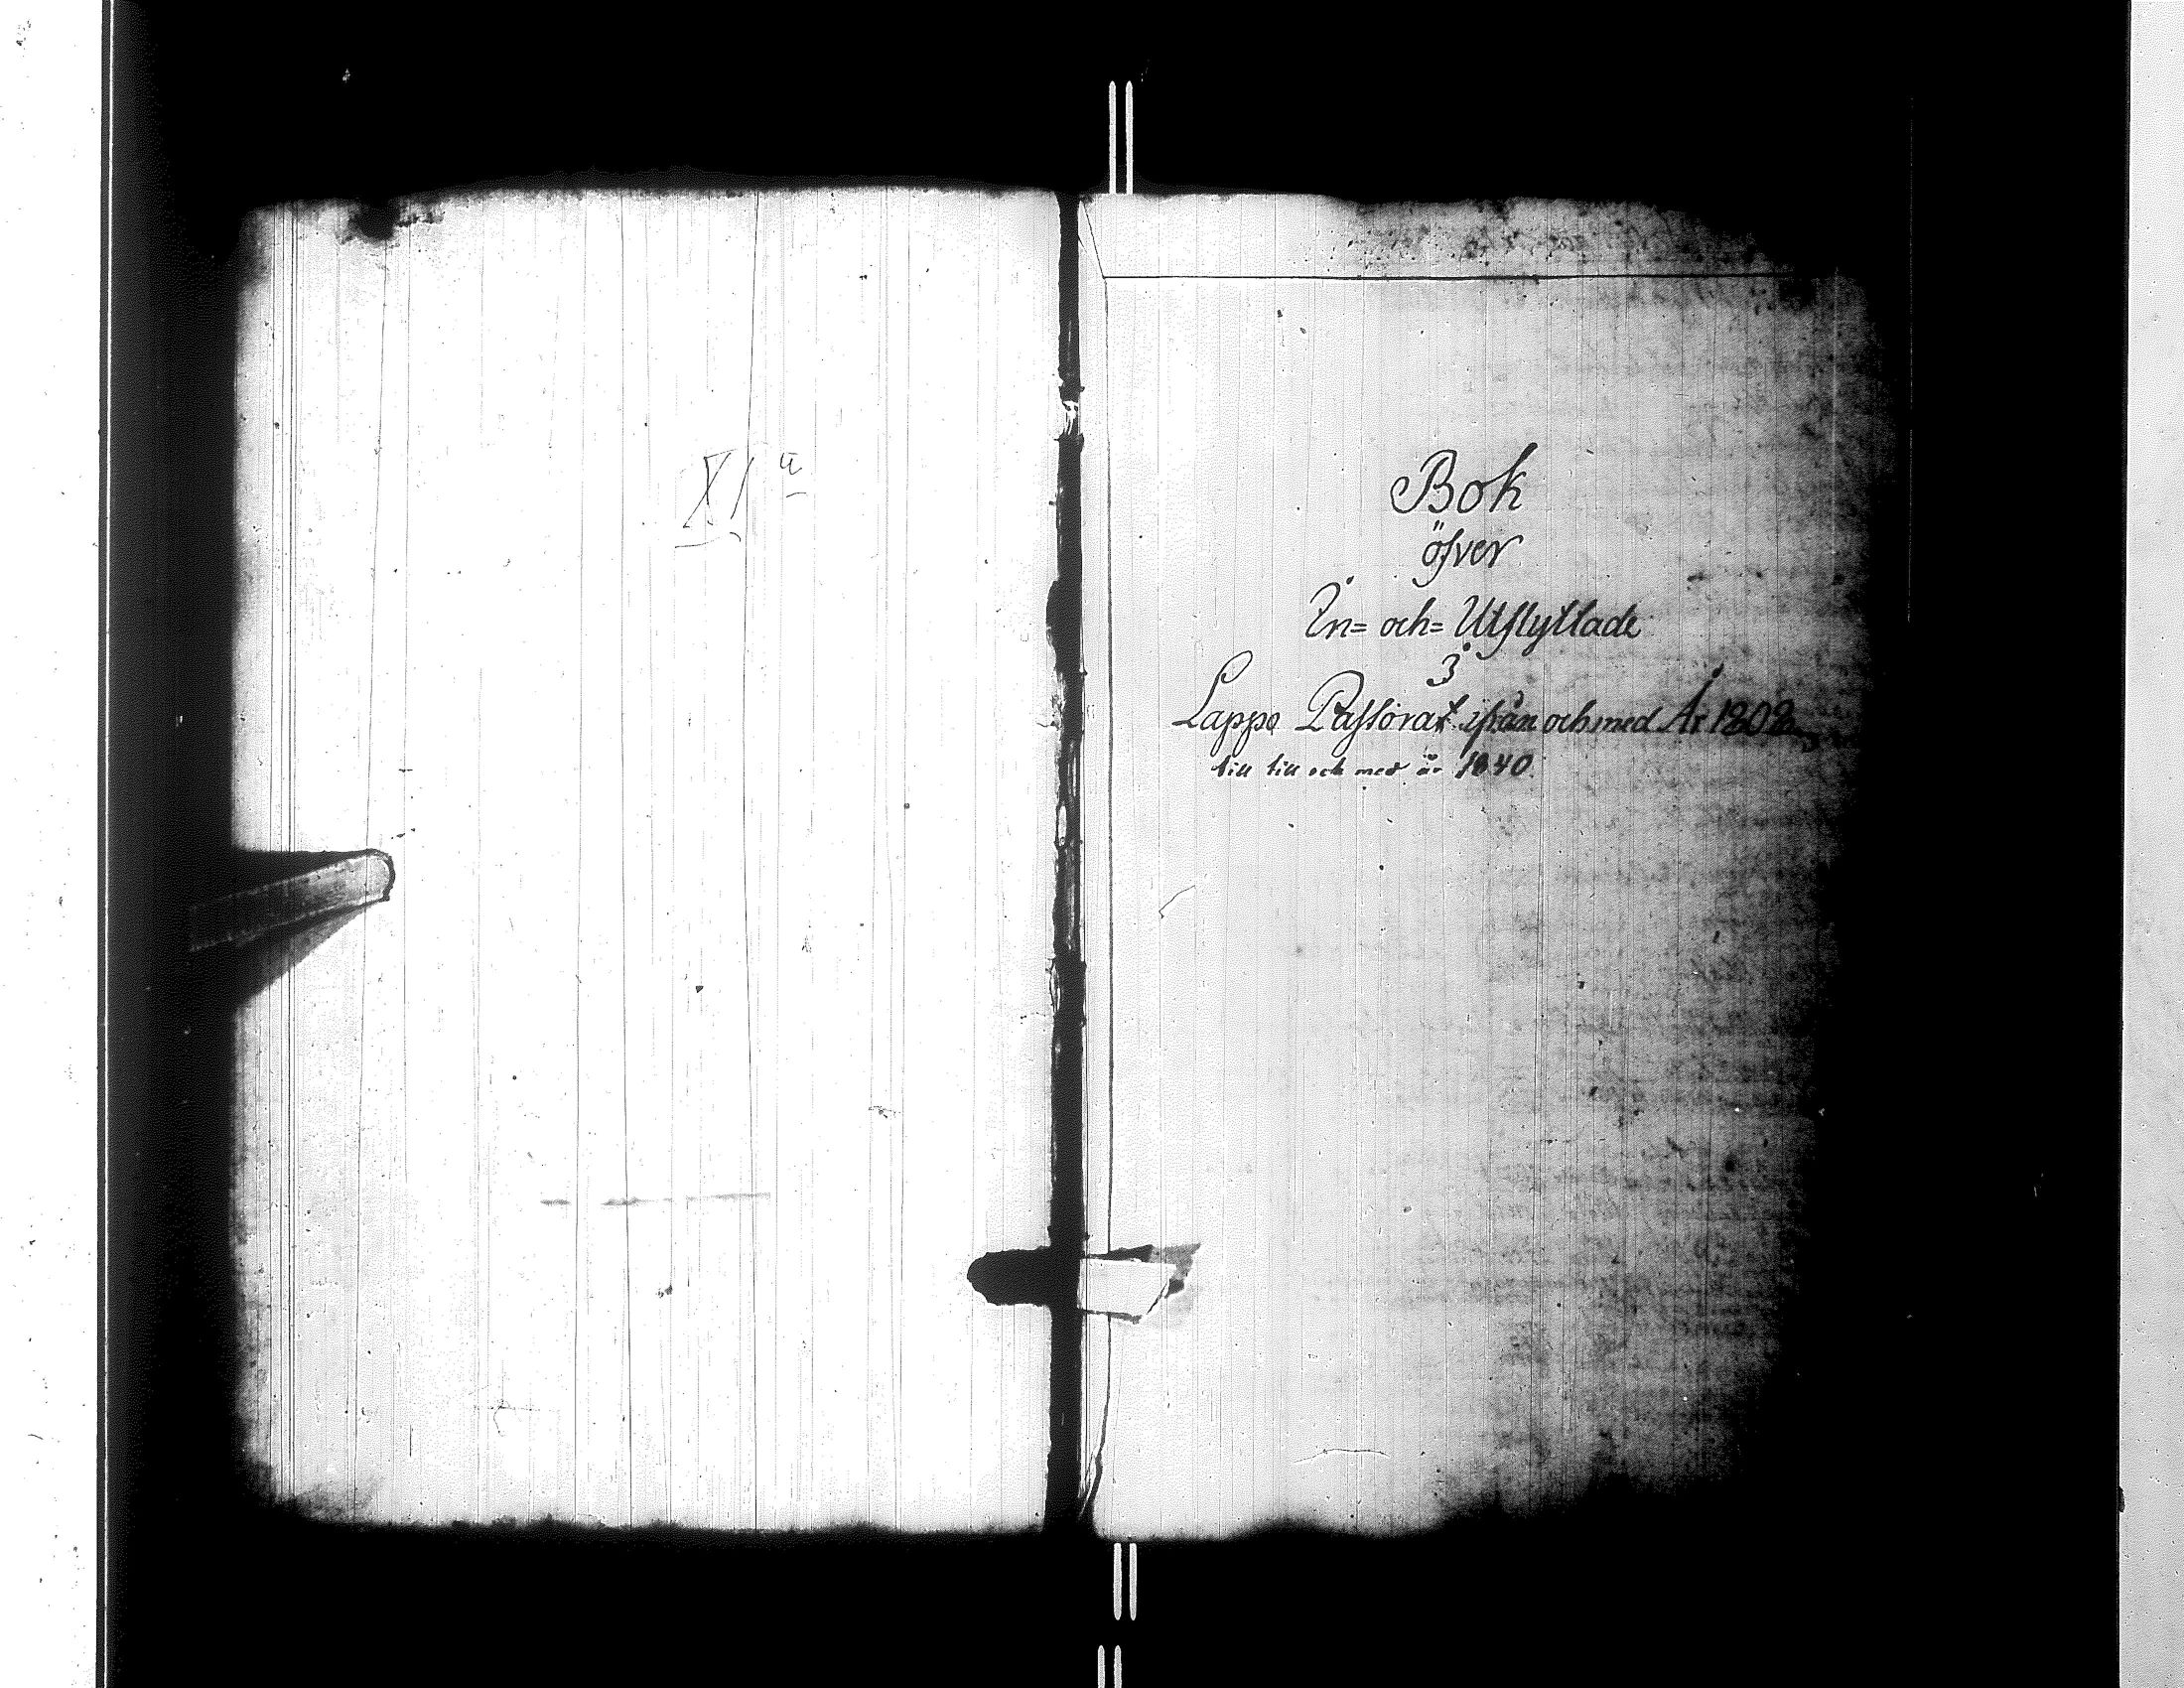 XI a
Bok
öfver
In= och= Utflyttade
i
Lappo Pastorat ifrån och med År 1808
till till och med år 1840.